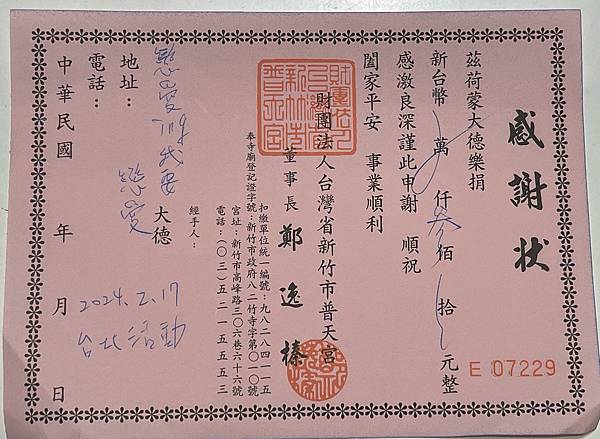 感謝狀
茲荷蒙大德樂捐
新台幣 萬 仟 參佰 拾 元整
E 07229
感激良深謹此申謝 順祝
闔家平安 事業順利
財團法人台灣省新竹市普天宮
董事長 鄭逸榛
扣繳單位統一編號：九八二八四一一五
奉寺廟登記證字號：新竹市政府八二竹寺字第〇一〇號
宮址：新竹市高峰路三〇六巷六十六號
電話：(〇三)五二一五五五三
經手人：
戀愛ing我要
戀愛 大德
地址：
電話：
中華民國 年 月 日
2024.2.17
台北活動